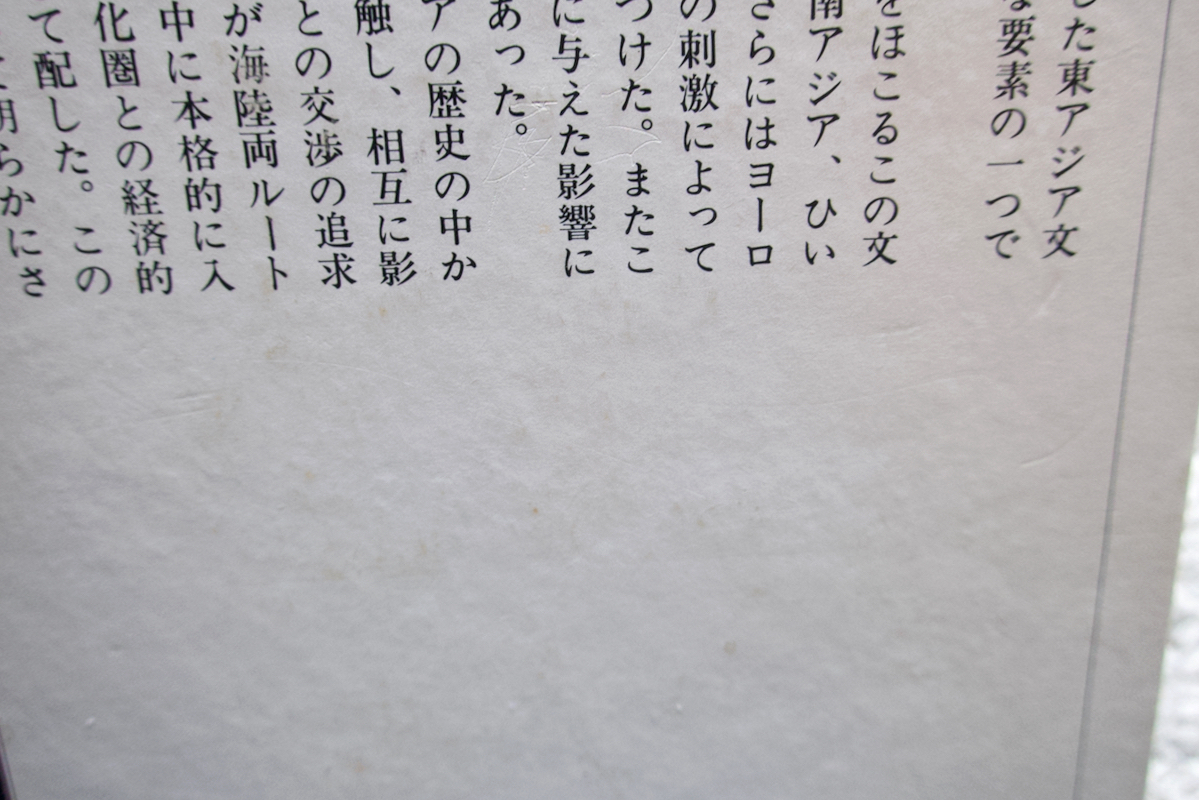 した東アジア文
な要素の一つで
をほこるこの文
南アジア、ひい
さらにはヨーロ
の刺激によって
つけた。またこ
に与えた影響に
あった。
アの歴史の中か
触し、相互に影
との交渉の追求
が海陸両ルート
中に本格的に入
化圏との経済的
て配した。この
て明らかにさ